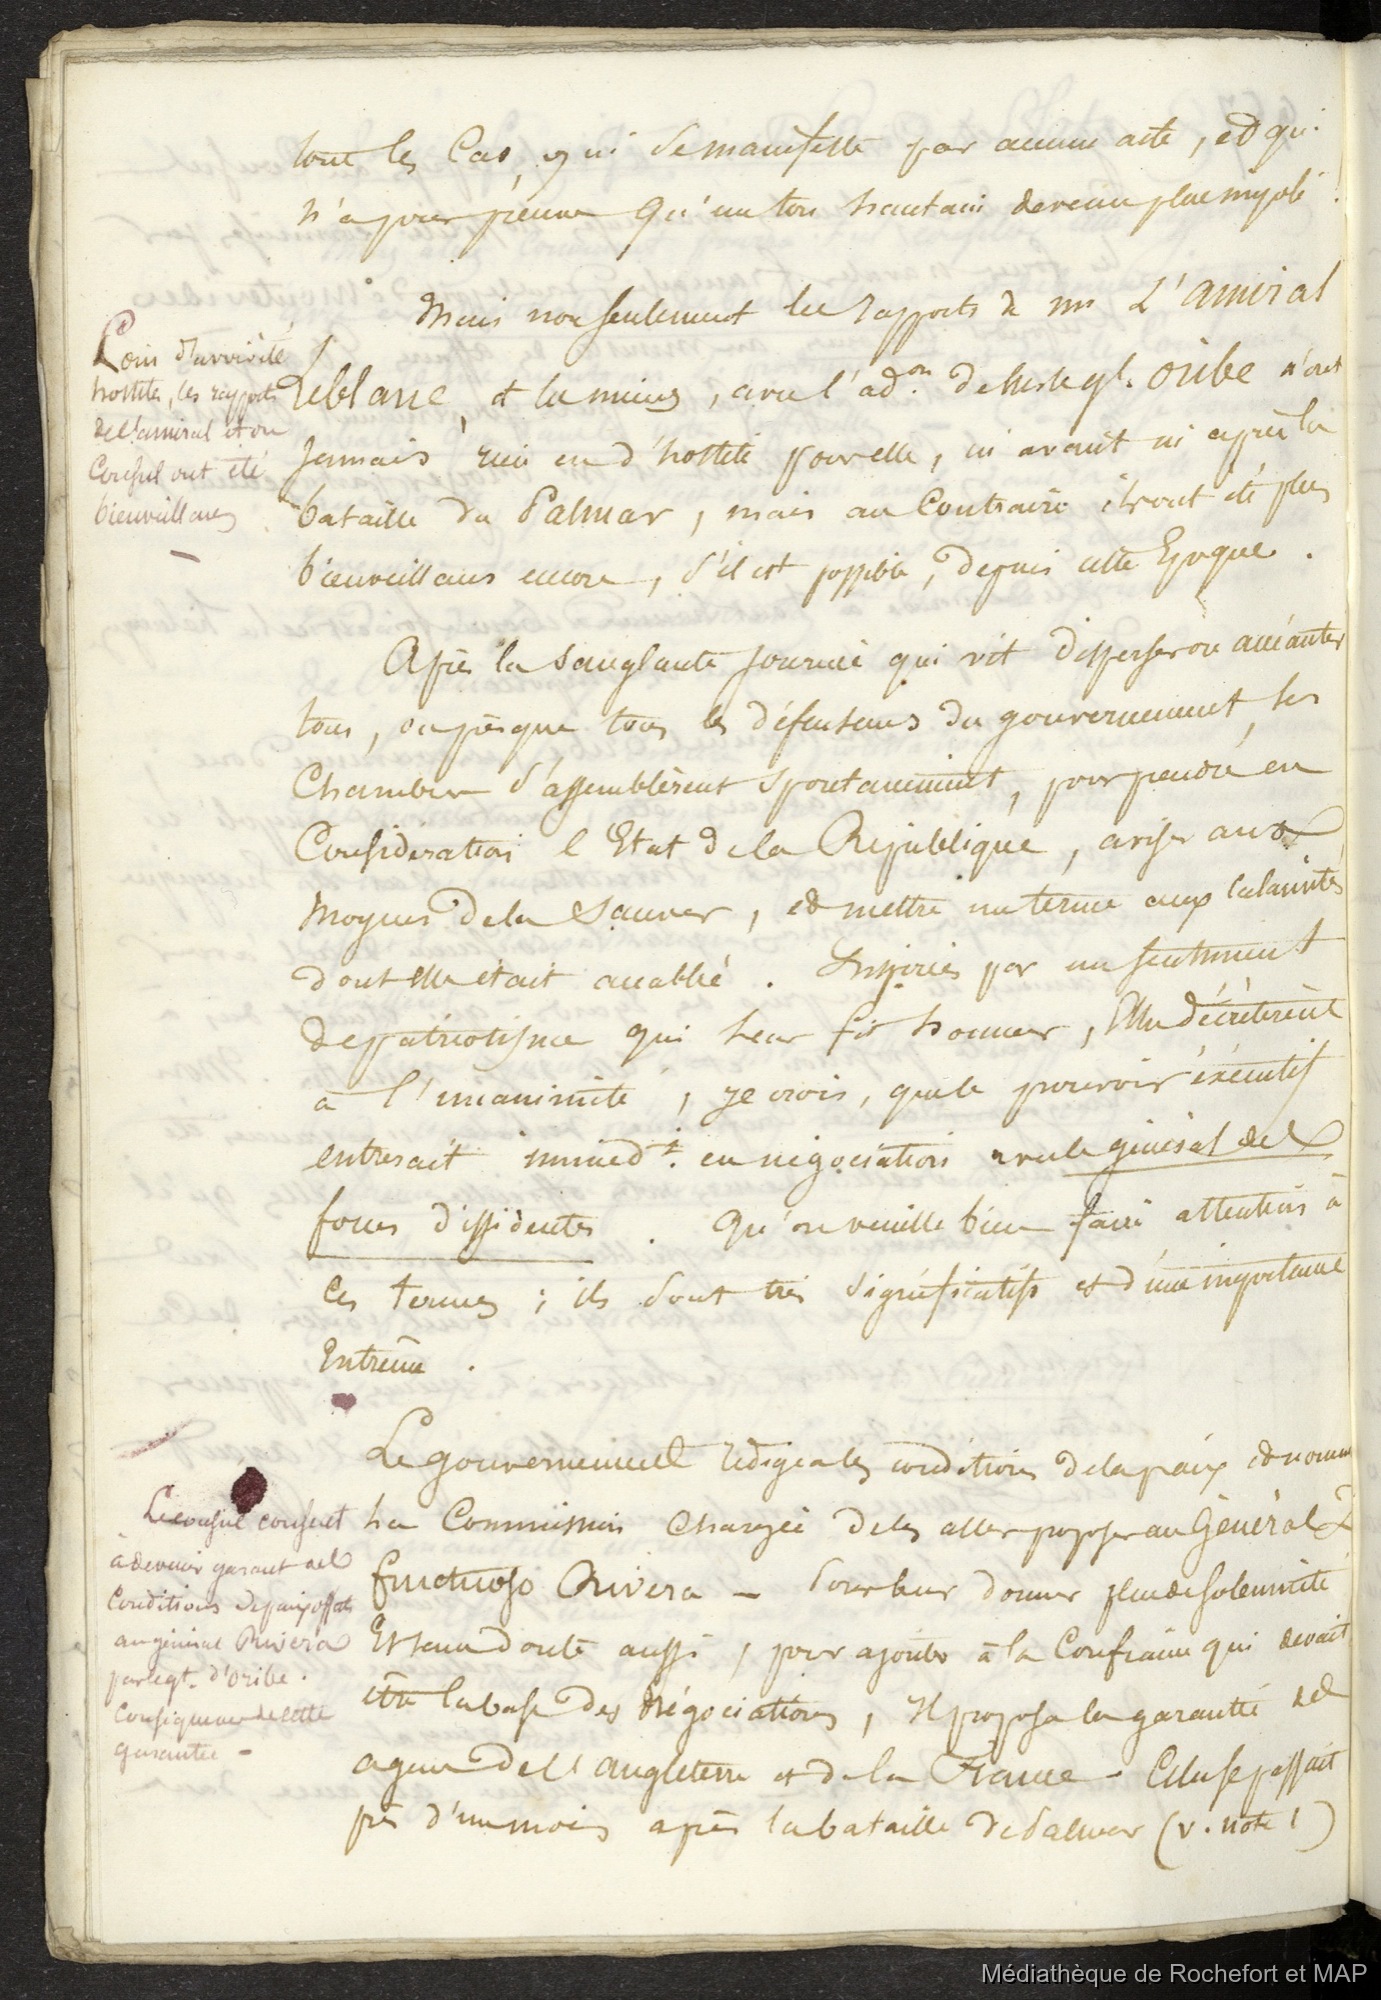 tous les Cas, qui se manifeste par aucun acte, et qui
n'a pour preuve qu'un ton hautain devenu plus impoli !
Mais non seulement les rapports de mr L'amiral
Leblanc, et les miens, avec l'ad.on de Mr le gl. Oribe n'ont
jamais rien eu d'hostile pour elle, ni avant ni après la
bataille du Palmar, mais au Contraire ils ont été plus
bienveillans encore, s'il est possible, depuis cette Epoque.
Loin d'avoir été
hostiles, les rapports
de l'amiral et du
Consul ont été
bienveillans
—
Après la sanglante journée qui vit disperser ou anéantir
tous, ou presque tous les défenseurs du gouvernement, les
Chambres s'assemblèrent spontanément, pour prendre en
Considération l'Etat de la République, aviser aux
moyens de la sauver, et mettre un terme aux calamités
dont elle était accablée. Inspirées par un sentiment
de patriotisme qui leur fit honneur, Elles décrétèrent
à l'unanimité, je crois, que le pouvoir éxécutif
entrerait immedt. en négociation avec le général des
forces dissidentes. Qu'on veuille bien faire attention à
ces termes ; ils sont très significatifs et d'une importance
Extrême.
Le gouvernement rédigea les conditions de la paix et nomma
la Commission chargée de les aller proposer au Général D.
Fructuoso Rivera — Pour leur donner plus de solemnité
Et sans doute aussi, pour ajouter à la Confiance qui devait
être la base des négociations, Il proposa la garantie des
agens de l'angleterre et de la France. Cela se passait
près d'un mois après la bataille de Palmar (v. note 1)
Le consul consent
à devenir garant des
Conditions de paix offertes
au général Rivera
par le gl. d'Oribe.
Conséquences de cette
garantie —
Médiathèque de Rochefort et MAP